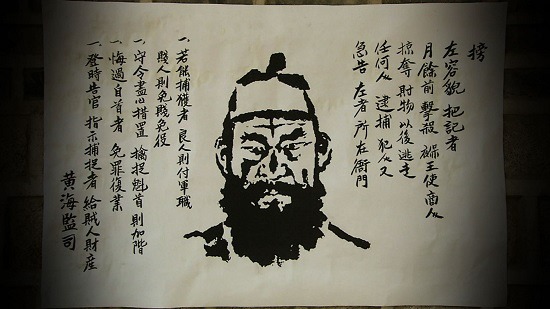 榜
左容貌 把記者
月餘前 擊殺 王使 商人
掠奪 財物以後 逃走
任何人 逮捕 犯人又
急告 左者 所在衙門
一. 若能捕獲者 良人則付軍職
賤人則免賤免役
一. 守令盡心措置 擒捉魁首則加階
一. 悔過自首者 免罪復業
一. 登時告官 指示捕捉者 給賊人財産
黄海監司